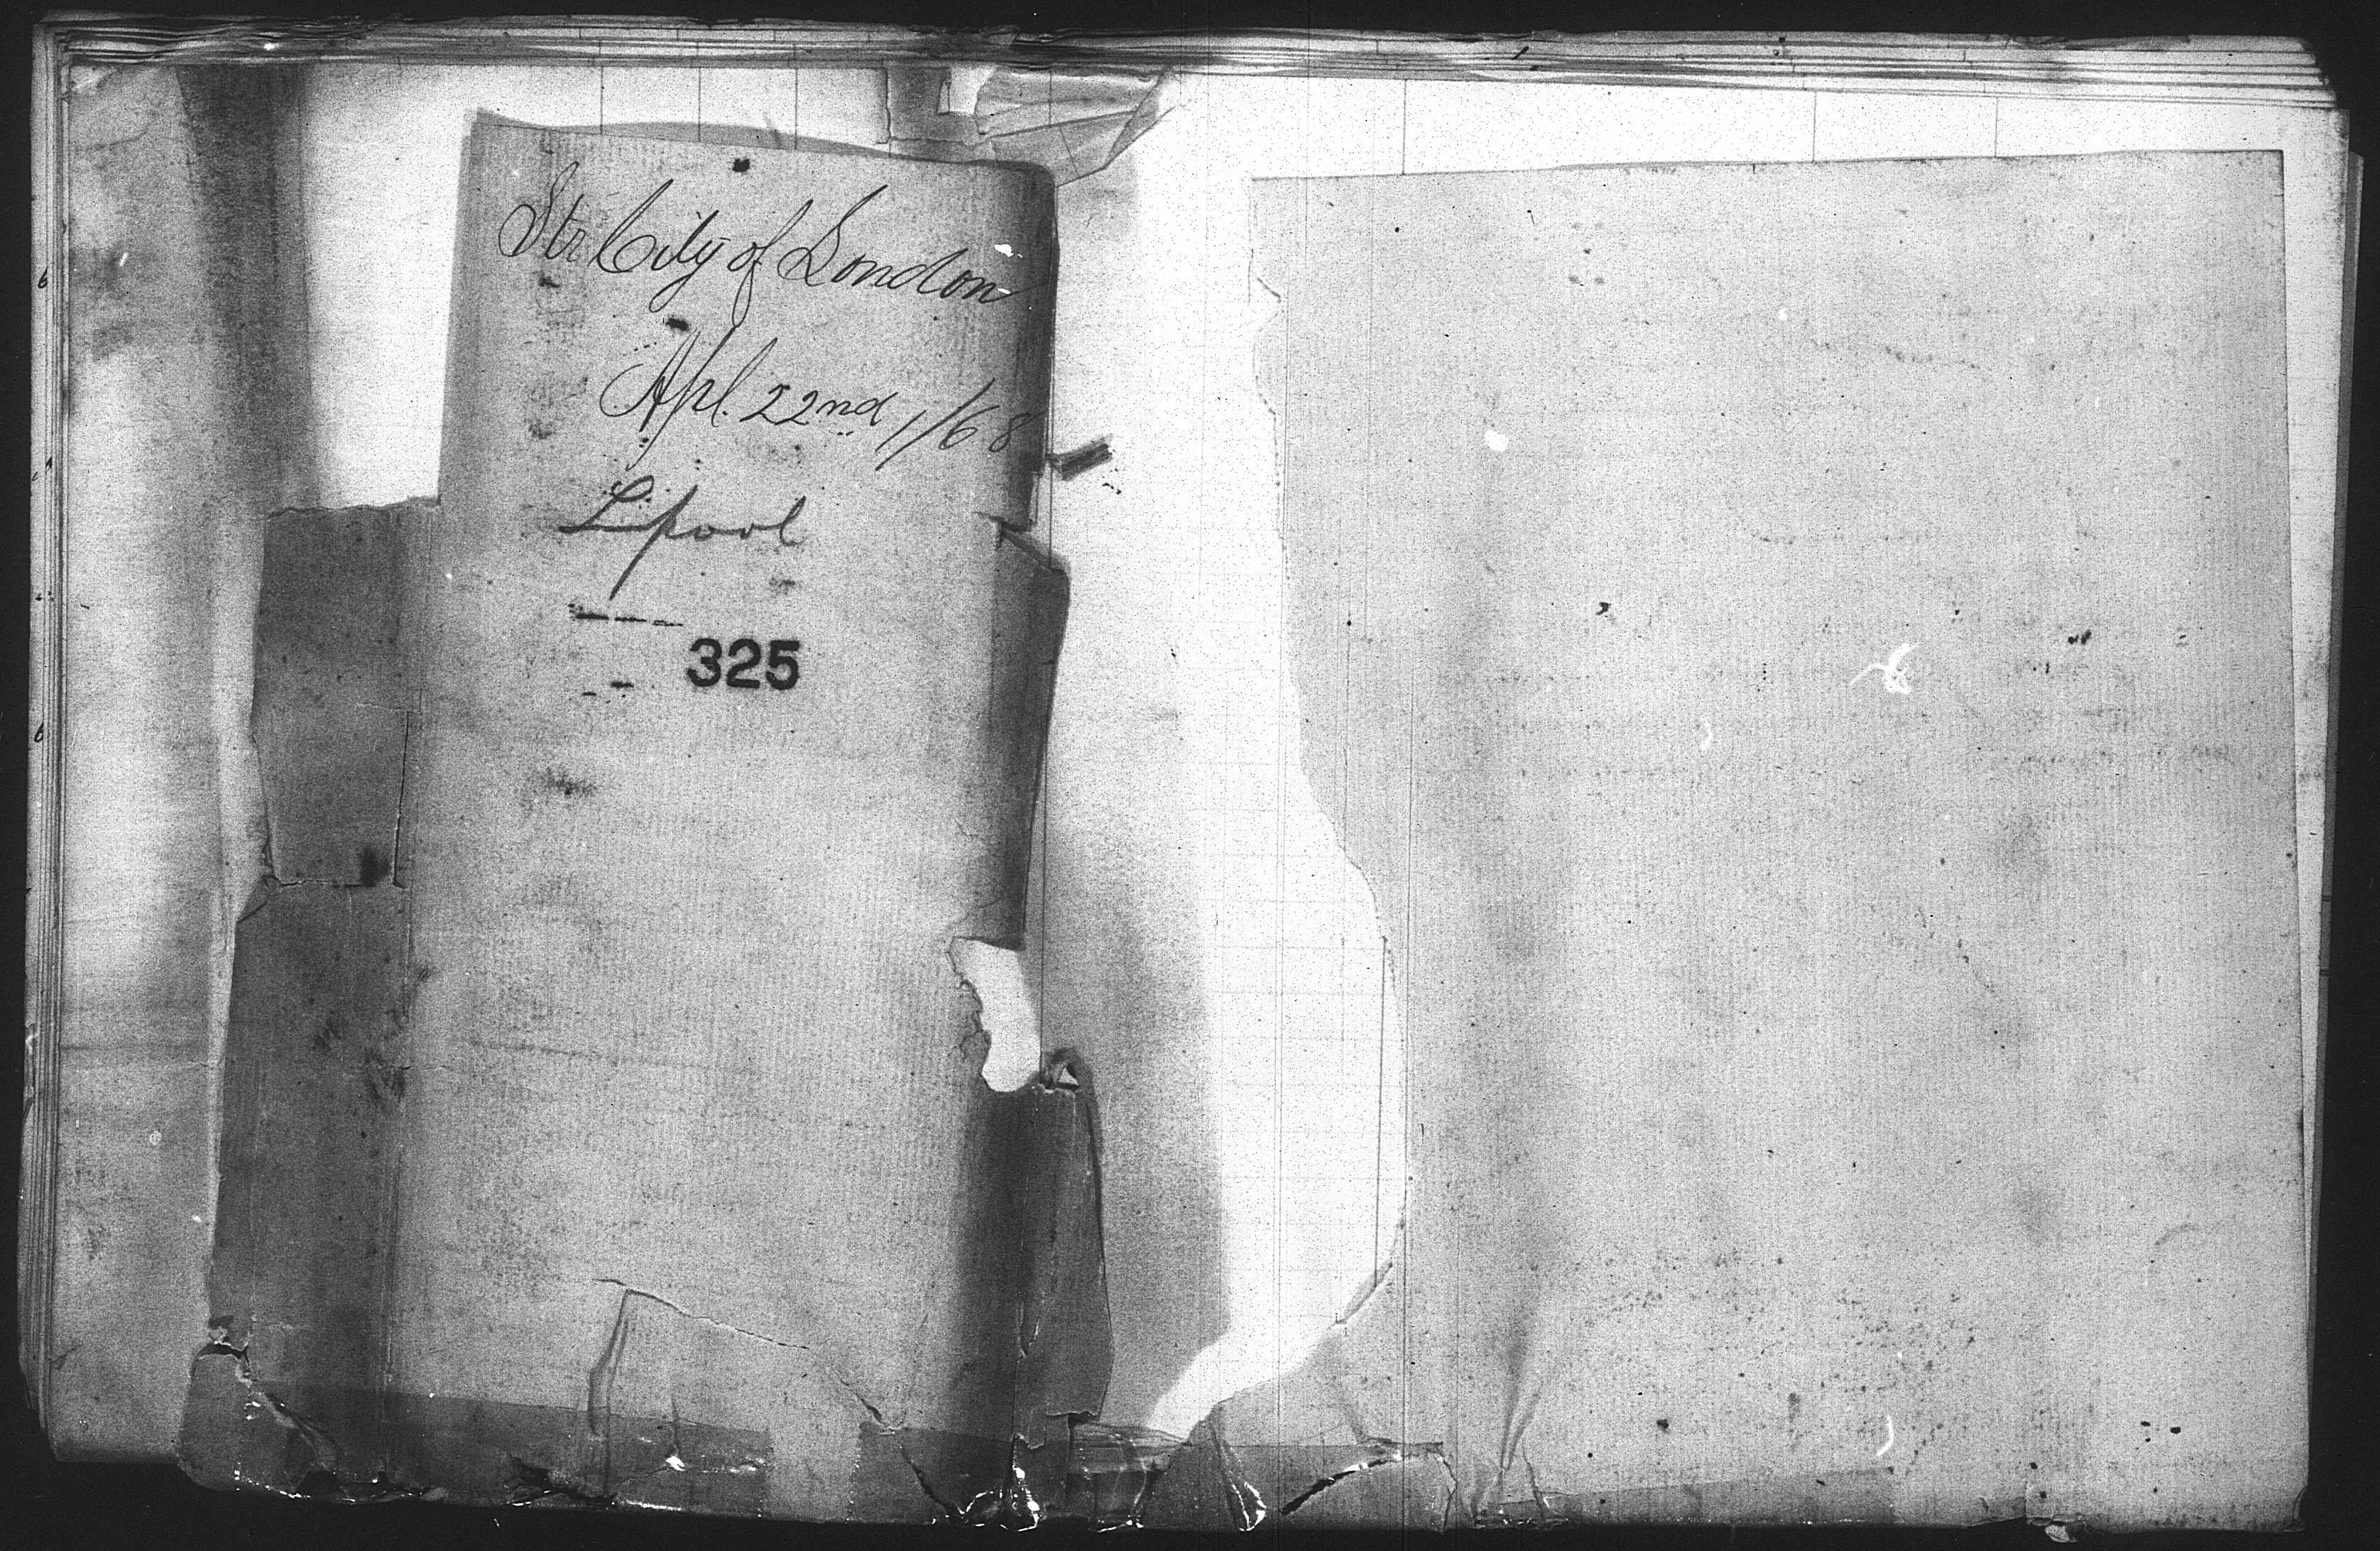 Str City of London
Apl. 22nd 1/68
Lpool
325